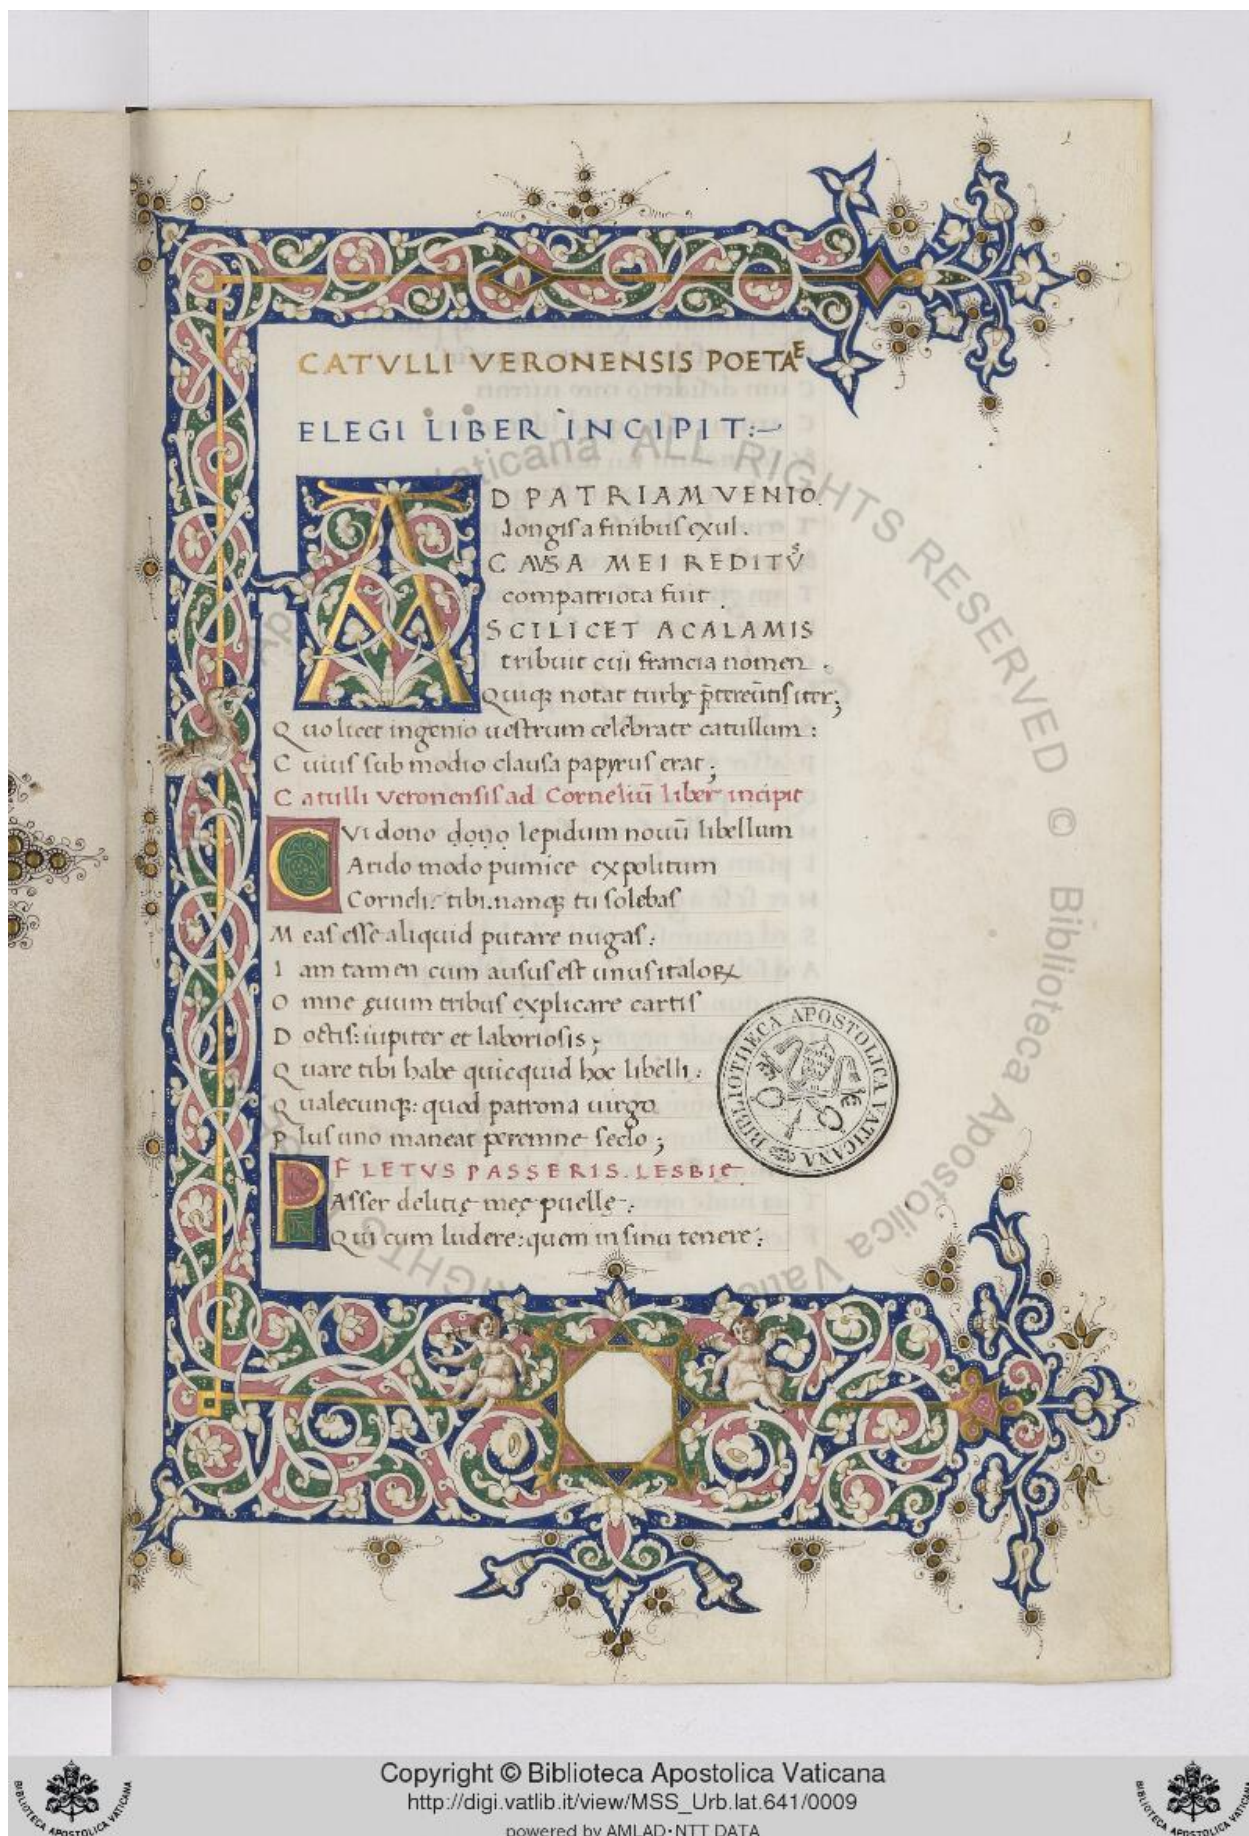 CATVLLI VERONENSIS POETAE
ELEGI LIBER INCIPIT:~
AD PATRIAM VENIO
longis a finibus exul.
CAVSA MEI REDITVS
compatriota fuit.
SCILICET A CALAMIS
tribuit cui francia nomen.
Quiqꝫ notat turbę p̄tereūtis iter;
Quo licet ingenio uestrum celebrate catullum:
Cuius sub modio clausa papyrus erat;
Catulli Veronensis ad Corneliū liber incipit
CVi dono dono lepidum nouū libellum
Arido modo pumice expolitum
Corneli: tibi. nanqꝫ tu solebas
Meas esse aliquid putare nugas:
Iam tamen cum ausus est unus italoꝝ
Omne æuum tribus explicare cartis
Doctis: iupiter et laboriosis;
Quare tibi habe quicquid hoc libelli:
Qualecunqꝫ: quod patrona uirgo
Plus uno maneat perenne seclo;
FLETVS PASSERIS. LESBIE
PAsser delitię meę puellę:
Qui cum ludere: quem in sinu tenere:
BIBLIOTHECA APOSTOLICA VATICANA
Vaticana ALL RIGHTS RESERVED © Biblioteca Apostolica Vaticana
Copyright © Biblioteca Apostolica Vaticana
http://digi.vatlib.it/view/MSS_Urb.lat.641/0009
powered by AMLAD•NTT DATA
BIBLIOTECA APOSTOLICA VATICANA
BIBLIOTECA APOSTOLICA VATICANA